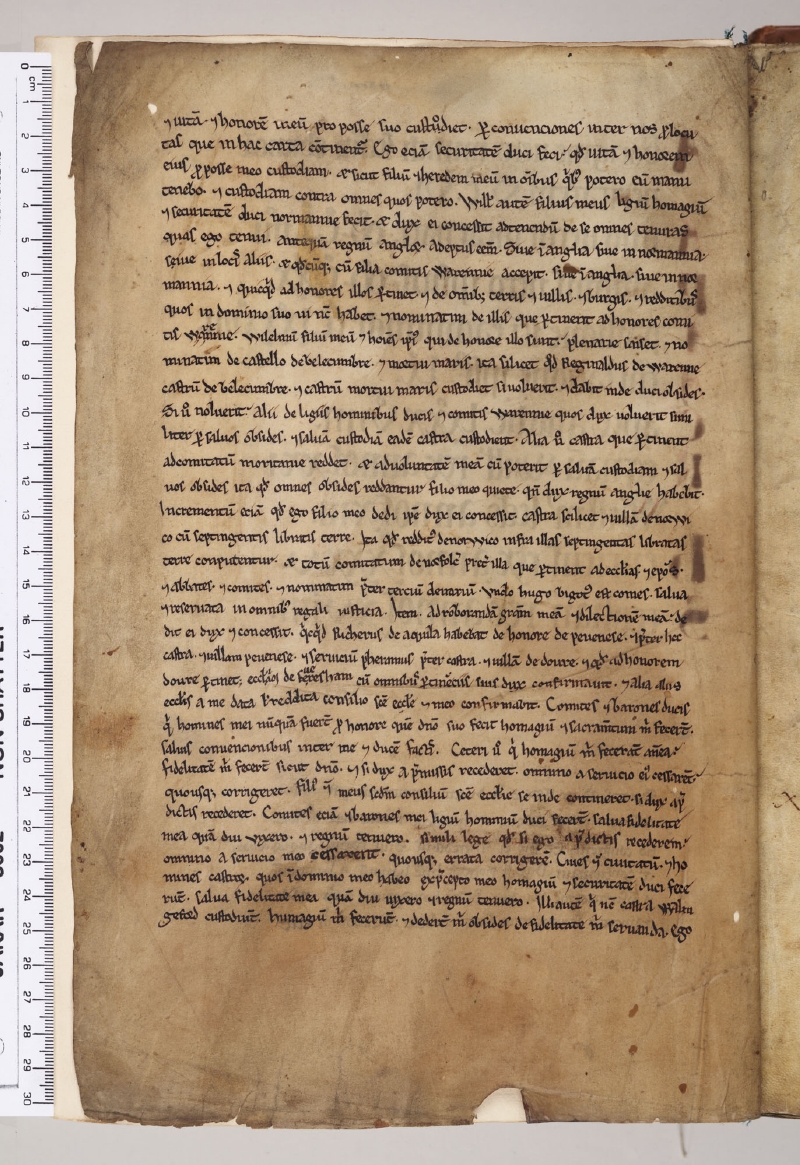 ⁊ uitā ⁊ honorē meū pro posse suo custodiet. ꝑ conuenciones inter nos ꝓlocu
tas que in hac carta ↄtinent᷑. Ego eciā securitatē duci feci. qđ uitā ⁊ honorem
eius ꝑ posse meo custodiam. ⁊ sicut filiū ⁊ heredem meū in oībus potero eū manu
tenebo. ⁊ custodiam contra omnes quos potero. Will̄s autē filius meus ligiū homagiū
⁊ securitatē duci normannie fecit. ⁊ dux ei concessit ad tenendū de se omnes tenuras
quas ego tenui. antequā regnū anglię adeptus eēm. Siue ī anglia siue in normannia.
seiue in locis aliis. ⁊ qđcūq; cū filia comitis Warennie accepit. siue ī anglia. siue in nor
mannia. ⁊ quicqđ ad honores illos ꝑtinet. ⁊ de omīb; terris ⁊ uillis. ⁊ burgis. ⁊ redditibus
quos in dominio suo in nc̄ habet. ⁊ nominatim de illis que ꝑtinent ad honores comi
tis Warennie. Wilelmū filiū meū ⁊ hoīes ip̄i qui de honore illo sunt. plenarie saiset. ⁊ no
minatim de castello de belecumbre. ⁊ moetui maris. ita silicet qđ Reginaldus de warenne
castrū de belecumbre. ⁊ castrū mortui maris custodiet si uoluerit. ⁊ dabit inde duci obsides.
Si ū noluerit alii de ligiis hominibus ducis ⁊ comitis Warennie quos dux uoluerit simi
liter ꝑ saluos obsides. ⁊ saluā custodiā eadē castra custodient. Alia ū castra que ꝑtinent
ad comitatū moritanie reddet. ⁊ ad uoluntatē meā cū poterit ꝑ saluā custodiam ⁊ sal
uos obsides ita qđ omnes obsides reddantur filio meo quiete. qn̄ dux regnū anglie habebit.
Incrementū eciā qđ ego filio meo dedi ip̄e dux ei concessit. castra scilicet ⁊ uillā de norwi
co cū septingentis libratis terre. Ita qđ reddit᷑ de norwico infra illas septingentas libratas
terre conputentur. ⁊ totū comitatum de norfolc pret᷑ illa que ꝑtinent ad ecclīas ⁊ epōs.
⁊ abbates. ⁊ comites. ⁊ nominatim p̄ter terciū denariū. Vnde hugo bigot est comes. salua
⁊ reseruata in omnib; regali iusticia. Item. ad roborandā grām meā ⁊ dilectionē meā. de
dit ei dux ⁊ concessit. qcqđ Richerus de aquila habebat de honore de peuenese. ⁊ p̄ter hec
castra. ⁊ uillam peuenese. ⁊ seruiciū pheramus p̄ter castra. ⁊ uillā de doure. ⁊ qđ ad honorem
doure ꝑtinet; eccliās de feuresham cū omnibus ꝑtinēciis suis dux confirmauit. ⁊ alia aliis
ecclīs a me data ł reddita consilio scē ecclē ⁊ meo confirmabit. Comites ⁊ barones ducis
q̇ homines mei nūquā fuerē ꝑ honore quē dn̄o suo fecit homagiū ⁊ sacramentum m̄ fecert̄.
saluis conuencionibus inter me ⁊ ducē factis. Ceteri ū q̇ homagiū m̄ fecerant antea.
fidelitatē m̄ fecert̄ sicut dn̄o. ⁊ si dux a p̄missis recederet. omnino a seruicio ei' cessarēt.
quousq; corrigeret. filī q̄ meus scdm consiliū scē ecclie se inde contineret. si dux a p̄
dictis recederet. Comites eciā ⁊ barones mei ligiū hominiū duci fecert̄. salua fidelitate
mea quā diu uixero. ⁊ regnū tenuero. simili lege qđ si ego a p̄dictis recederem.
omnino a seruicio meo cessauerit. quousq; errata corrigerē. Ciues q̄ ciuitatū. ⁊ ho
mines castroꝝ. quos ī dominio meo habeo ex p̄cepto meo homagiū ⁊ securitatē duci fece
rūt. salua fidelitate mea quā diu uixero ⁊ regnū tenuero. Illi autē q̇ castra Walin
geford custodiunt. humagiū m̄ fecerūt. ⁊ dedert̄ m̄ obsides de fidelitate m̄ seruanda. Ego